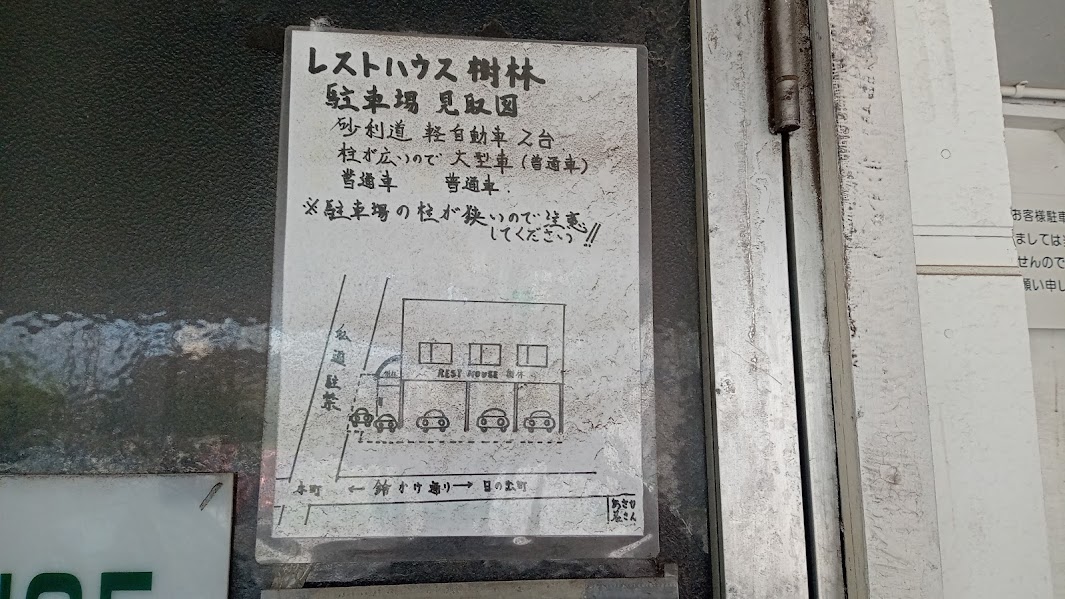 レストハウス 樹林
駐車場 見取図
砂利道 軽自動車 2台
柱が広いので 大型車(普通車)
普通車 普通車.
※駐車場の柱が狭いので注意
してください!!
私道駐禁
REST HOUSE 樹林
本町 ← 鈴かけ通り → 日の出町
お客様駐車
ましては
せんので
願い申し